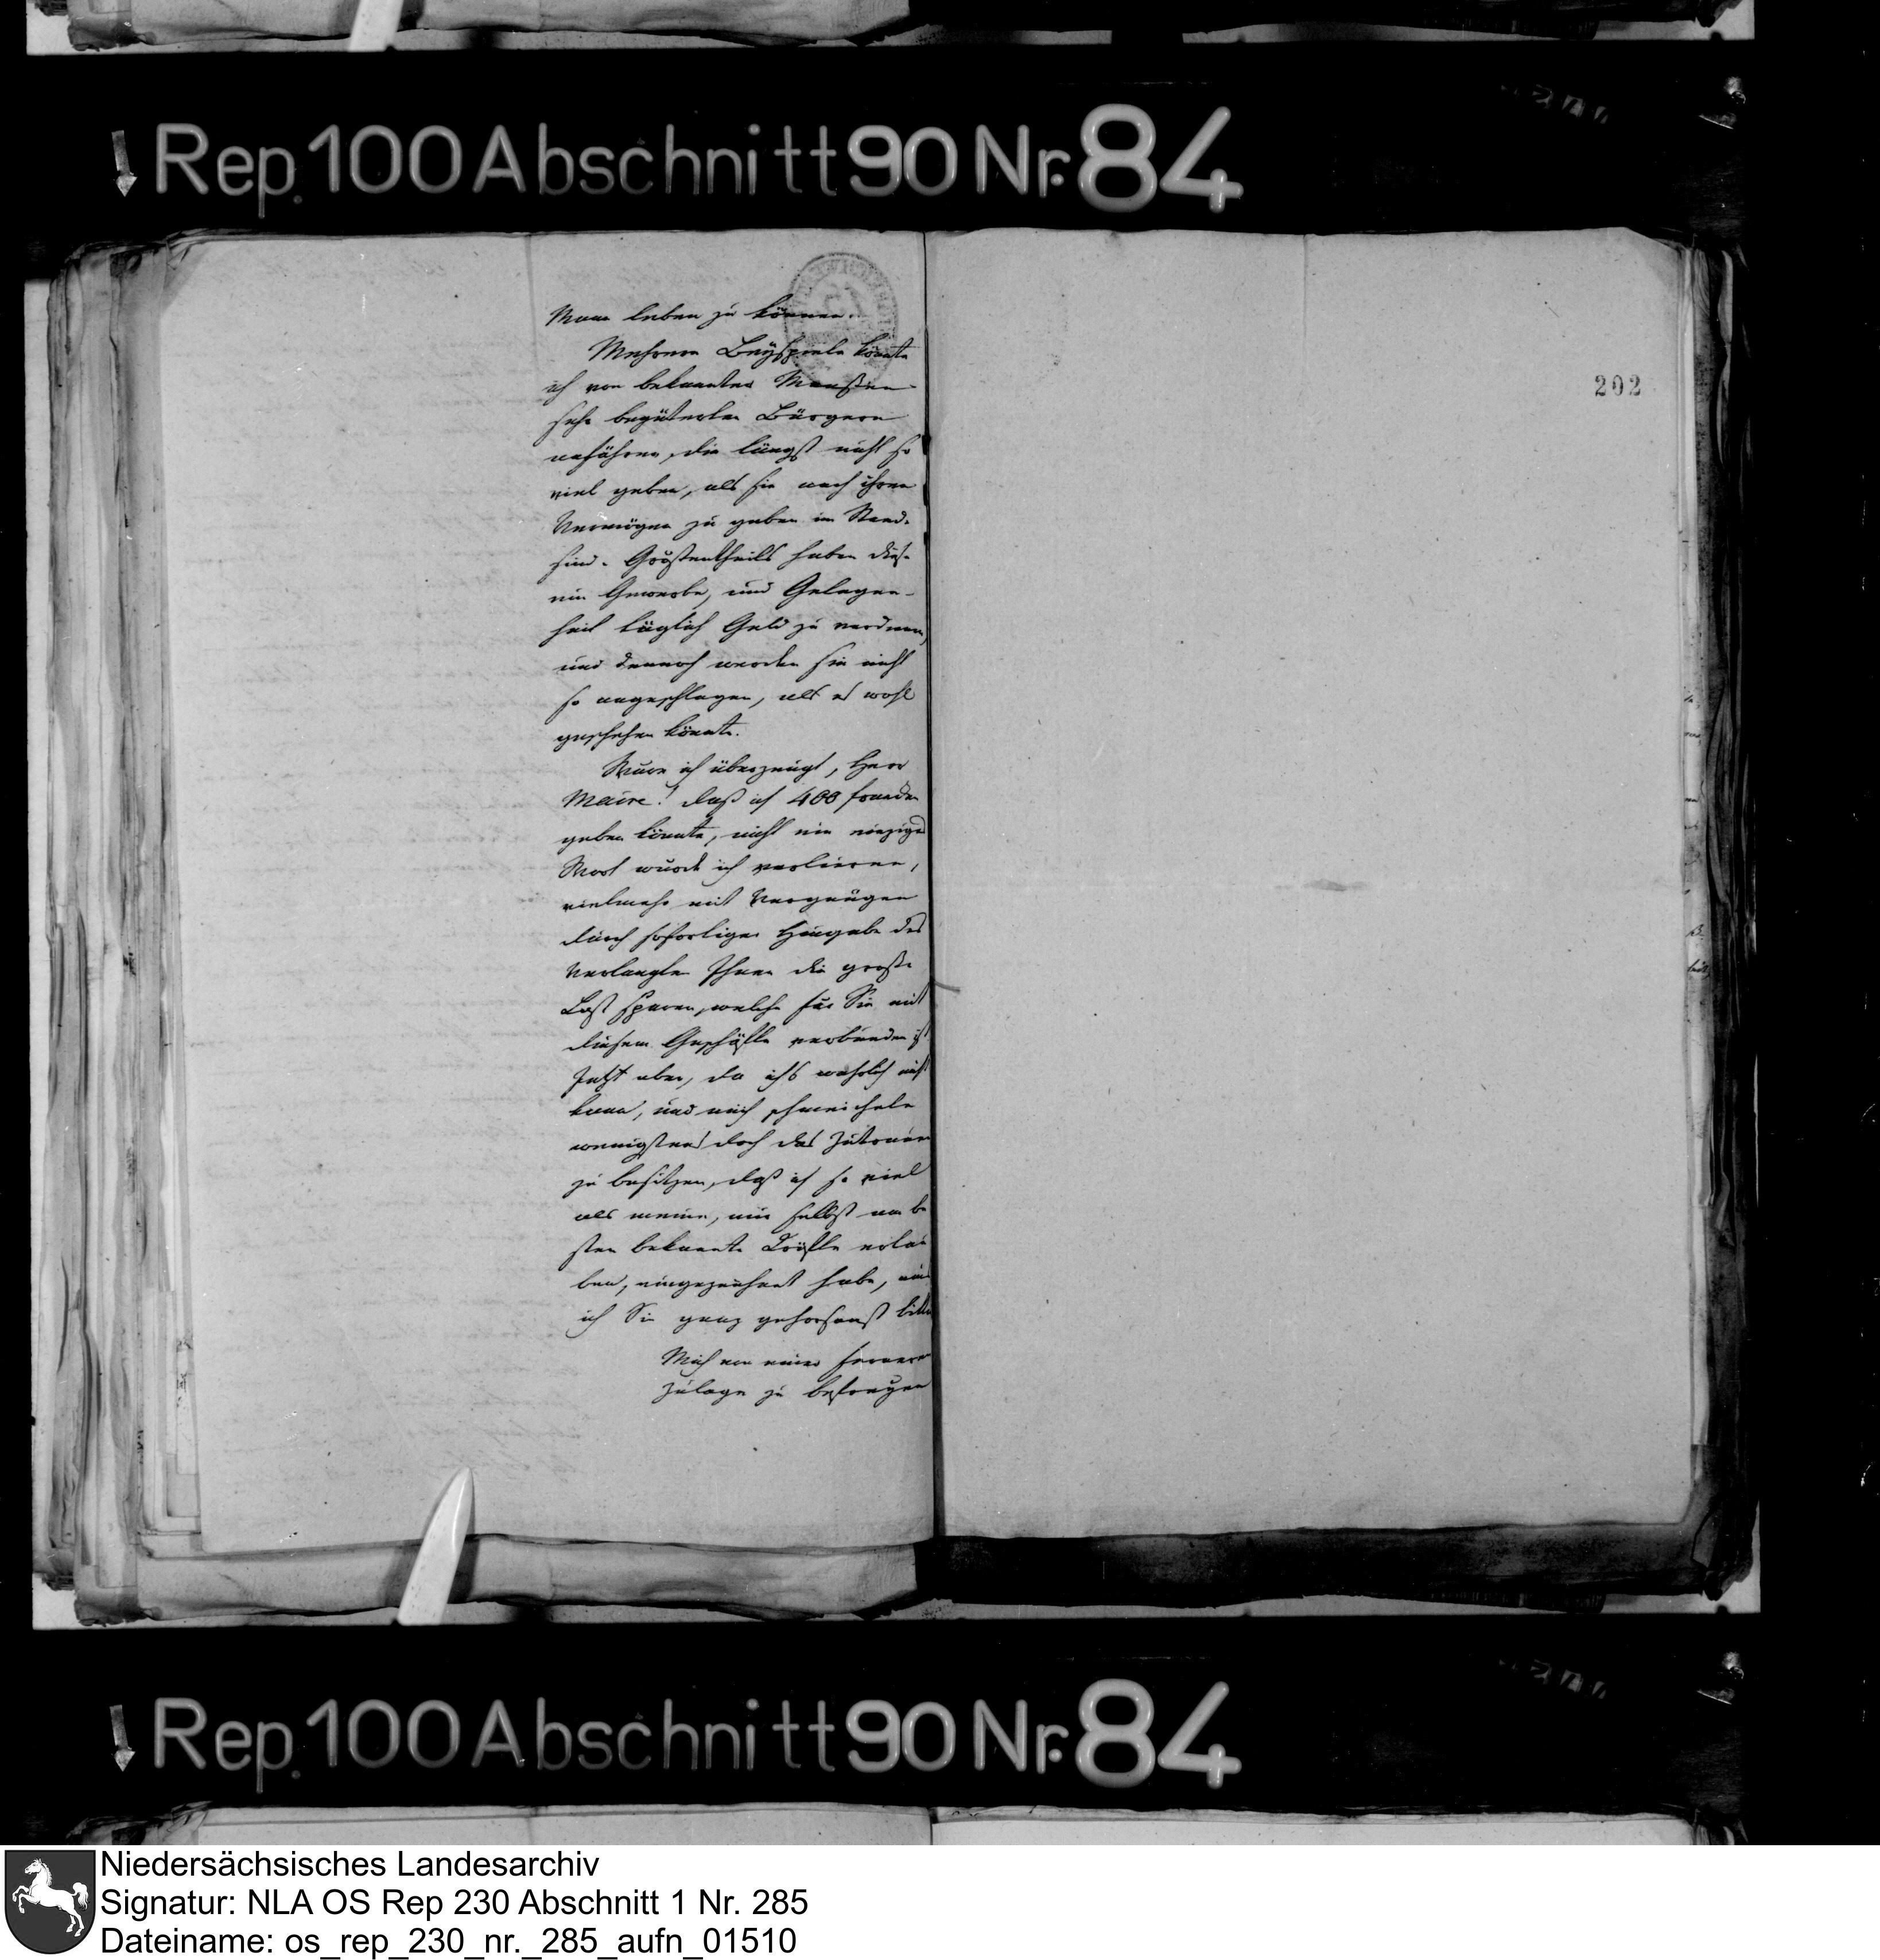 Rep. 100 Abschnitt 90 Nr. 84
Mann leben zu können.
Mehrere Beyspiele könnte
ich von bekannten Maaßen
sehr begüterten Bürgern
anführen, die längst nicht so
viel geben, als sie nach ihrem
Vermögen zu geben im Stande
sind. Größtentheils haben diese
ein Gewerbe, und Gelegen-
heit täglich Geld zu verdienen,
und dennoch werden sie nicht
so angeschlagen, als es wohl
geschehen könnte.
Wäre ich überzeugt, Herr
Maire! daß ich 400 franken
geben könnte, nicht ein einziges
Wort würde ich verlieren,
vielmehr mit Vergnügen
durch sofortige Hingabe des
Verlangten Ihnen die große
Last sparen, welche für Sie mit
diesem Geschäfte verbunden ist
Jetzt aber, da ichs wahrlich nicht
kann, und mich schmeichele
wenigstens doch das Zutrauen
zu besitzen, daß ich so viel
als meine, mir selbst am be
sten bekannte Kräfte erlau
ben, eingezeichnet habe, will
ich Sie ganz gehorsamst bitten
Mich von einer ferneren
Zulage zu befreyen
202
Rep. 100 Abschnitt 90 Nr. 84
Niedersächsisches Landesarchiv
Signatur: NLA OS Rep 230 Abschnitt 1 Nr. 285
Dateiname: os_rep_230_nr._285_aufn_01510